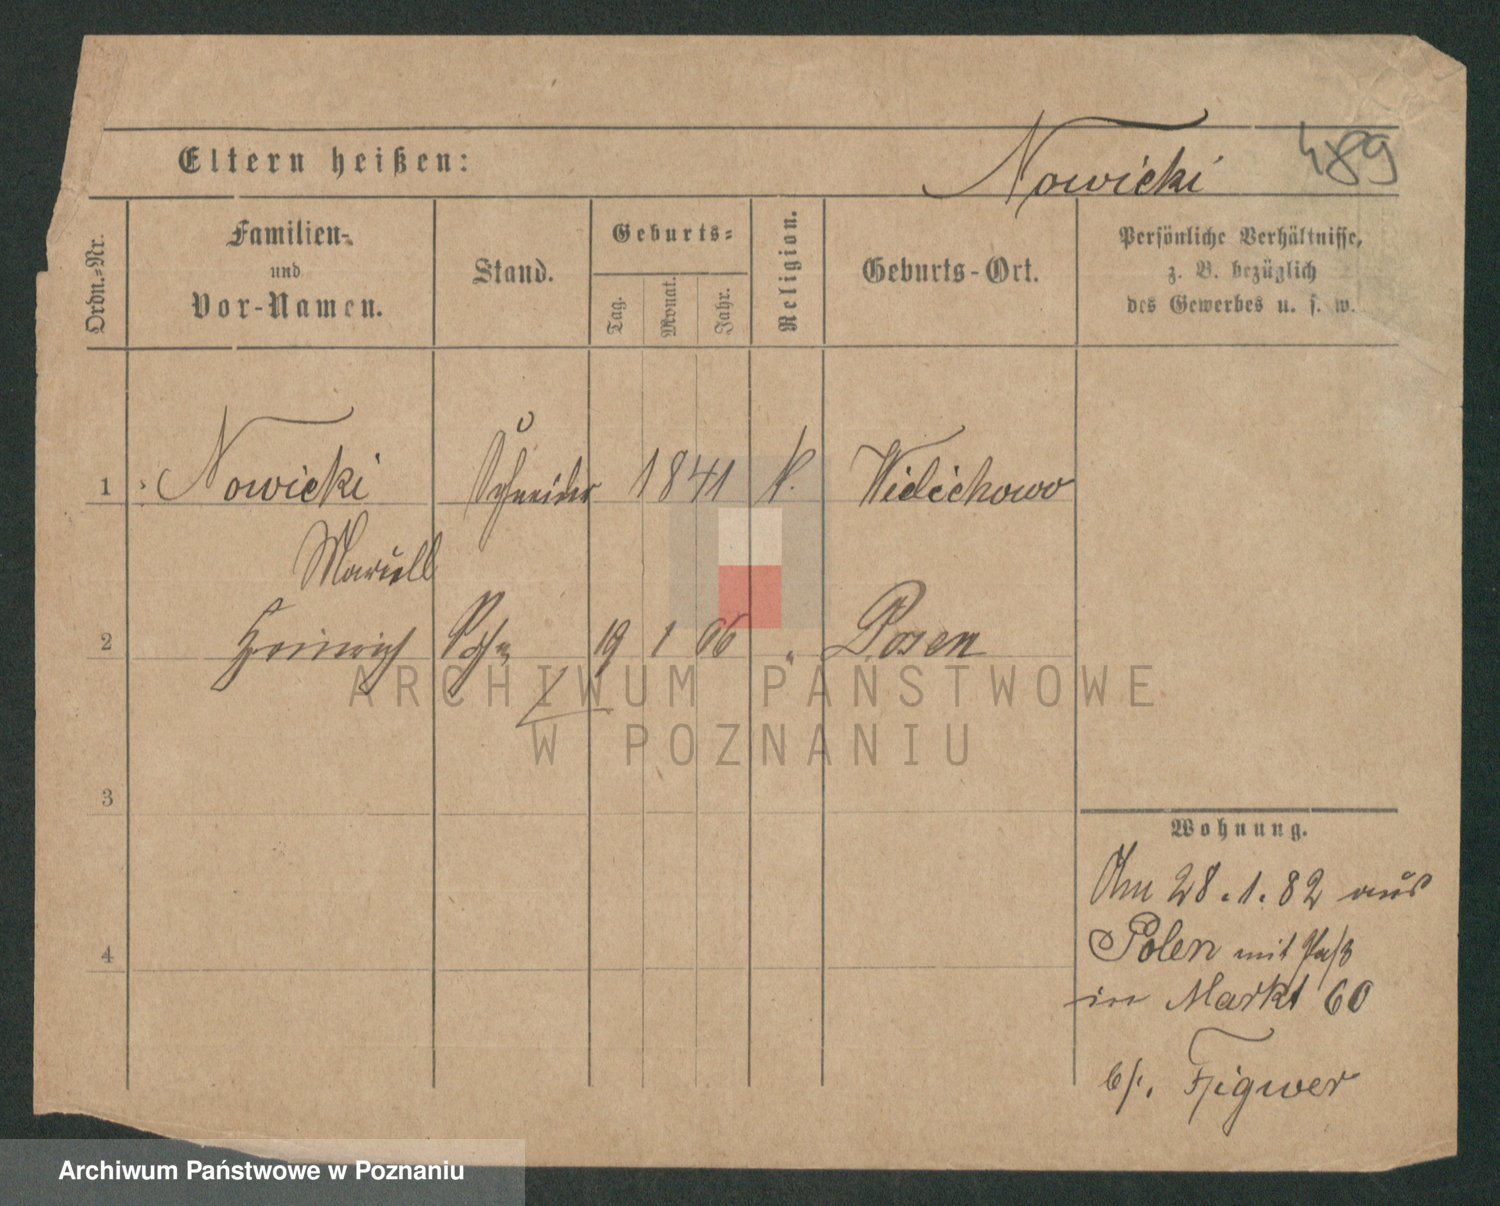 Eltern heißen:
Nowicki
489
Ordn.-Nr.
Familien-
und
Vor-Namen.
Stand.
Geburts-
Tag.
Monat.
Jahr.
Religion.
Geburts-Ort.
Persönliche Verhältnisse,
z. B. bezüglich
des Gewerbes u. s. w.
1 Nowicki Schneider 1841 k. Wielichowo
Marcell
2 Heinrich Sohn 19 1 66 " Posen
3
4
Wohnung.
Am 28.1.82 aus
Polen mit Paß
in Markt 60
b/. Figwer
ARCHIWUM PAŃSTWOWE
W POZNANIU
Archiwum Państwowe w Poznaniu